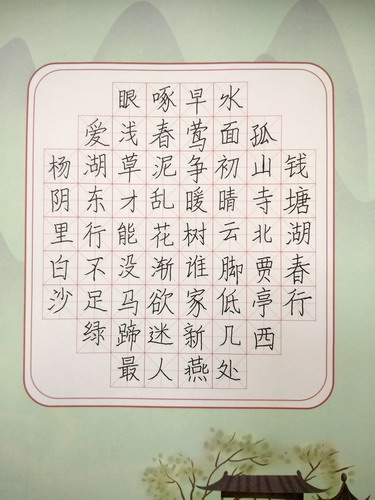 钱塘湖春行
孤山寺北贾亭西
水面初晴云脚低几处
早莺争暖树谁家新燕
啄春泥乱花渐欲迷人
眼浅草才能没马蹄最
爱湖东行不足绿
杨阴里白沙